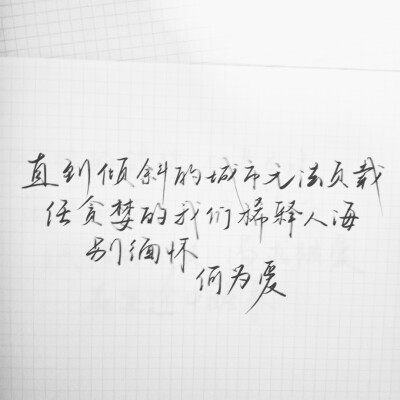 直到倾斜的城市无法负载
任贪婪的我们稀释人海
别缅怀
何为爱